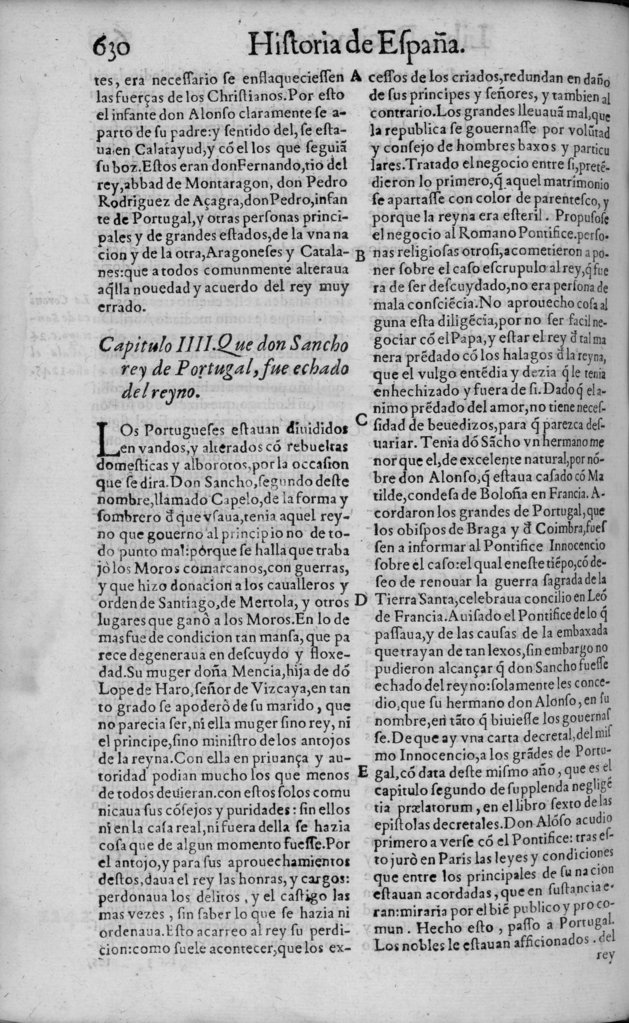 630 Historia de España.
tes, era necessario se enflaqueciessen
las fuerças de los Christianos.Por esto
el infante don Alonso claramente se a-
parto de su padre:y sentido del, se esta-
ua en Calatayud,y cõ el los que seguiã
su boz.Estos eran donFernando,tio del
rey,abbad de Montaragon, don Pedro
Rodriguez de Açagra,donPedro,infan
te de Portugal,y otras personas princi-
pales y de grandes estados,de la vna na
cion y de la otra,Aragoneses y Catala-
nes:que a todos comunmente alteraua
aq̃lla nouedad y acuerdo del rey muy
errado.
Capitulo IIII.Que don Sancho
rey de Portugal, fue echado
del reyno.
LOs Portugueses estauan diuididos
en vandos,y alterados cõ rebueltas
domesticas y alborotos,por la occasion
que se dira. Don Sancho,segundo deste
nombre,llamado Capelo,de la forma y
sombrero đ que vsaua,tenia aquel rey-
no que gouerno al principio no de to-
do punto mal:porque se halla que traba
jò los Moros comarcanos,con guerras,
y que hizo donacion a los caualleros y
orden de Santiago,de Mertola, y otros
lugares que ganò a los Moros.En lo de
mas fue de condicion tan mansa, que pa
rece degeneraua en descuydo y floxe-
dad.Su muger doña Mencia,hija de dõ
Lope de Haro,señor de Vizcaya,en tan
to grado se apoderò de su marido, que
no parecia ser,ni ella muger sino rey, ni
el principe,sino ministro de los antojos
de la reyna.Con ella en priuança y au-
toridad podian mucho los que menos
de todos deuieran.con estos solos comu
nicaua sus cõsejos y puridades: sin ellos
ni en la casa real,ni fuera della se hazia
cosa que de algun momento fuesse.Por
el antojo,y para sus aprouechamientos
destos,daua el rey las honras, y cargos:
perdonaua los delitos, y el castigo las
mas vezes, sin saber lo que se hazia ni
ordenaua.Esto acarreo al rey su perdi-
cion:como suele acontecer,que los ex-
A cessos de los criados,redundan en daño
de sus principes y señores, y tambien al
contrario.Los grandes lleuauã mal,que
la republica se gouernasse por volũtad
y consejo de hombres baxos y particu
lares.Tratado el negocio entre si,pretẽ-
dieron lo primero,q̃ aquel matrimonio
se apartasse con color de parentesco, y
porque la reyna era esteril. Propusose
el negocio al Romano Pontifice.perso-
B nas religiosas otrosi,acometieron a po-
ner sobre el caso escrupulo al rey,q̃ fue
ra de ser descuydado,no era persona de
mala consciẽcia.No aprouecho cosa al
guna esta diligẽcia,por no ser facil ne-
gociar cõ el Papa,y estar el rey đ tal ma
nera prẽdado cõ los halagos đ la reyna,
que el vulgo entẽdia y dezia q̃ le tenia
enhechizado y fuera de si.Dado q̃ el a-
nimo prẽdado del amor,no tiene neces-
C sidad de beuedizos,para q̃ parezca des-
uariar. Tenia dõ Sãcho vn hermano me
nor que el,de excelente natural,por nõ-
bre don Alonso,q̃ estaua casado cõ Ma
tilde,condesa de Boloña en Francia. A-
cordaron los grandes de Portugal,que
los obispos de Braga y đ Coimbra,fues
sen a informar al Pontifice Innocencio
sobre el caso:el qual en este tiẽpo,cõ de-
seo de renouar la guerra sagrada de la
D Tierra Santa,celebraua concilio en Leõ
de Francia.Auisado el Pontifice de lo q̃
passaua,y de las causas de la embaxada
que trayan de tan lexos,sin embargo no
pudieron alcançar q̃ don Sancho fuesse
echado del reyno:solamente les conce-
dio,que su hermano don Alonso, en su
nombre,en tãto q̃ biuiesse los gouernas
se.De que ay vna carta decretal,del mis
mo Innocencio,a los grãdes de Portu-
E gal,cõ data deste mismo año, que es el
capitulo segundo de supplenda negligẽ
tia prælatorum, en el libro sexto de las
epistolas decretales.Don Alõso acudio
primero a verse cõ el Pontifice: tras es-
to jurò en Paris las leyes y condiciones
que entre los principales de su nacion
estauan acordadas, que en sustancia e-
ran:miraria por el biẽ publico y pro co-
mun. Hecho esto, passo a Portugal.
Los nobles le estauan afficionados. del
rey